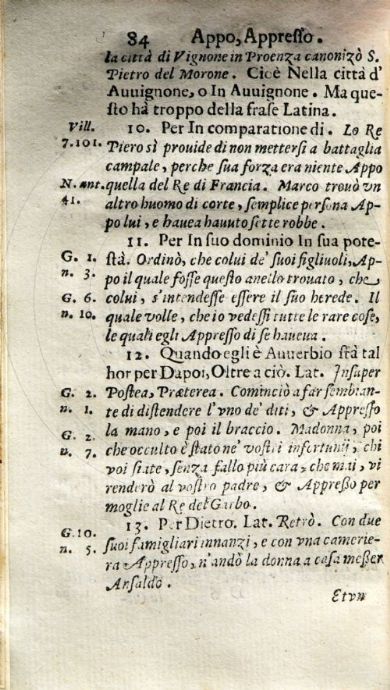 84 Appo, Appresso.
la città di Vignone in Proenza canonizò S.
Pietro del Morone. Cioè Nella città d'
Auuignone, o In Auuignone. Ma que-
sto hà troppo della frase Latina.
Vill. 10. Per In comparatione di. Lo Re
7.101. Piero sì prouide di non mettersi a battaglia
campale, perche sua forza era niente Appo
N. ant. quella del Re di Francia. Marco trouò vn
41. altro huomo di corte, semplice persona Ap-
po lui, e hauea hauuto sette robbe.
11. Per In suo dominio In sua pote-
G. 1. stà. Ordinò, che colui de' suoi figliuoli, Ap-
n. 3. po il quale fosse questo anello trouato, che
G. 6. colui, s'intendesse essere il suo herede. Il
n. 10. quale volle, che io vedessi tutte le rare cose,
le quali egli Appresso di se haueua.
12. Quando egli è Auuerbio stà tal
hor per Dapoi, Oltre a ciò. Lat. Insuper
G. 2. Postea, Præterea. Cominciò a far sembian-
n. 1. te di distendere l'vno de' diti, & Appresso
G. 2. la mano, e poi il braccio. Madonna, poi
n. 7. che occulto è stato ne' vostri infortunij, chi
voi siate, senza fallo più cara, che mai, vi
renderò al vostro padre, & Appresso per
moglie al Re del Garbo.
G.10. 13. Per Dietro. Lat. Retrò. Con due
n. 5. suoi famigliari innanzi, e con vna camerie-
ra Appresso, n'andò la donna a casa messer
Ansaldo.
Et vn